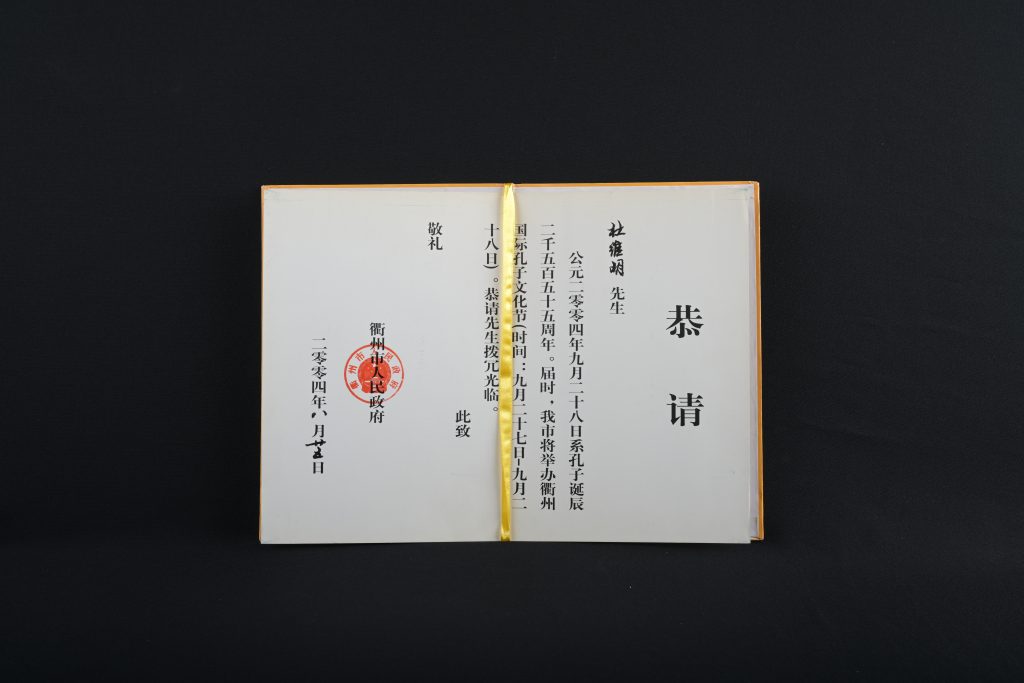 恭请
杜维明 先生
公元二零零四年九月二十八日系孔子诞辰
二千五百五十五周年。届时，我市将举办衢州
国际孔子文化节(时间：九月二十七日-九月二
十八日)。恭请先生拨冗光临。
此致
敬礼
衢州市人民政府
衢州市人民政府
二零零四年八月廿五日